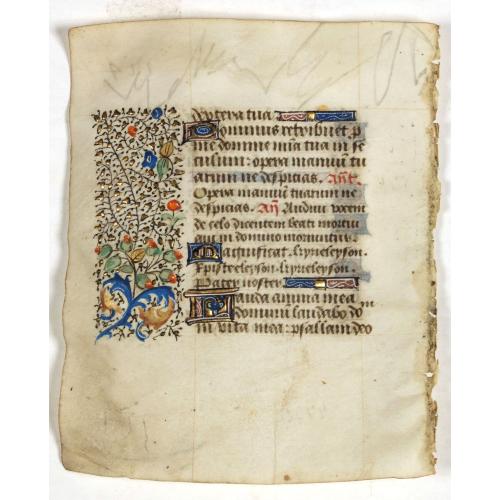 opera tua
Dominus retribuet p
me domine mīa tua in se
culum: opera manuum tu
arum ne despicias. Añt.
Opera manuū tuarum ne
despicias. Añ Audivi vocem
de celo dicentem beati mortui
qui in domino moriuntur.
Magnificat. kyrieleyson.
Xp̄isteeleyson. kyrieleyson.
Pater noster
Lauda anima mea
dominum laudabo do m
in vita mea: psallam deo